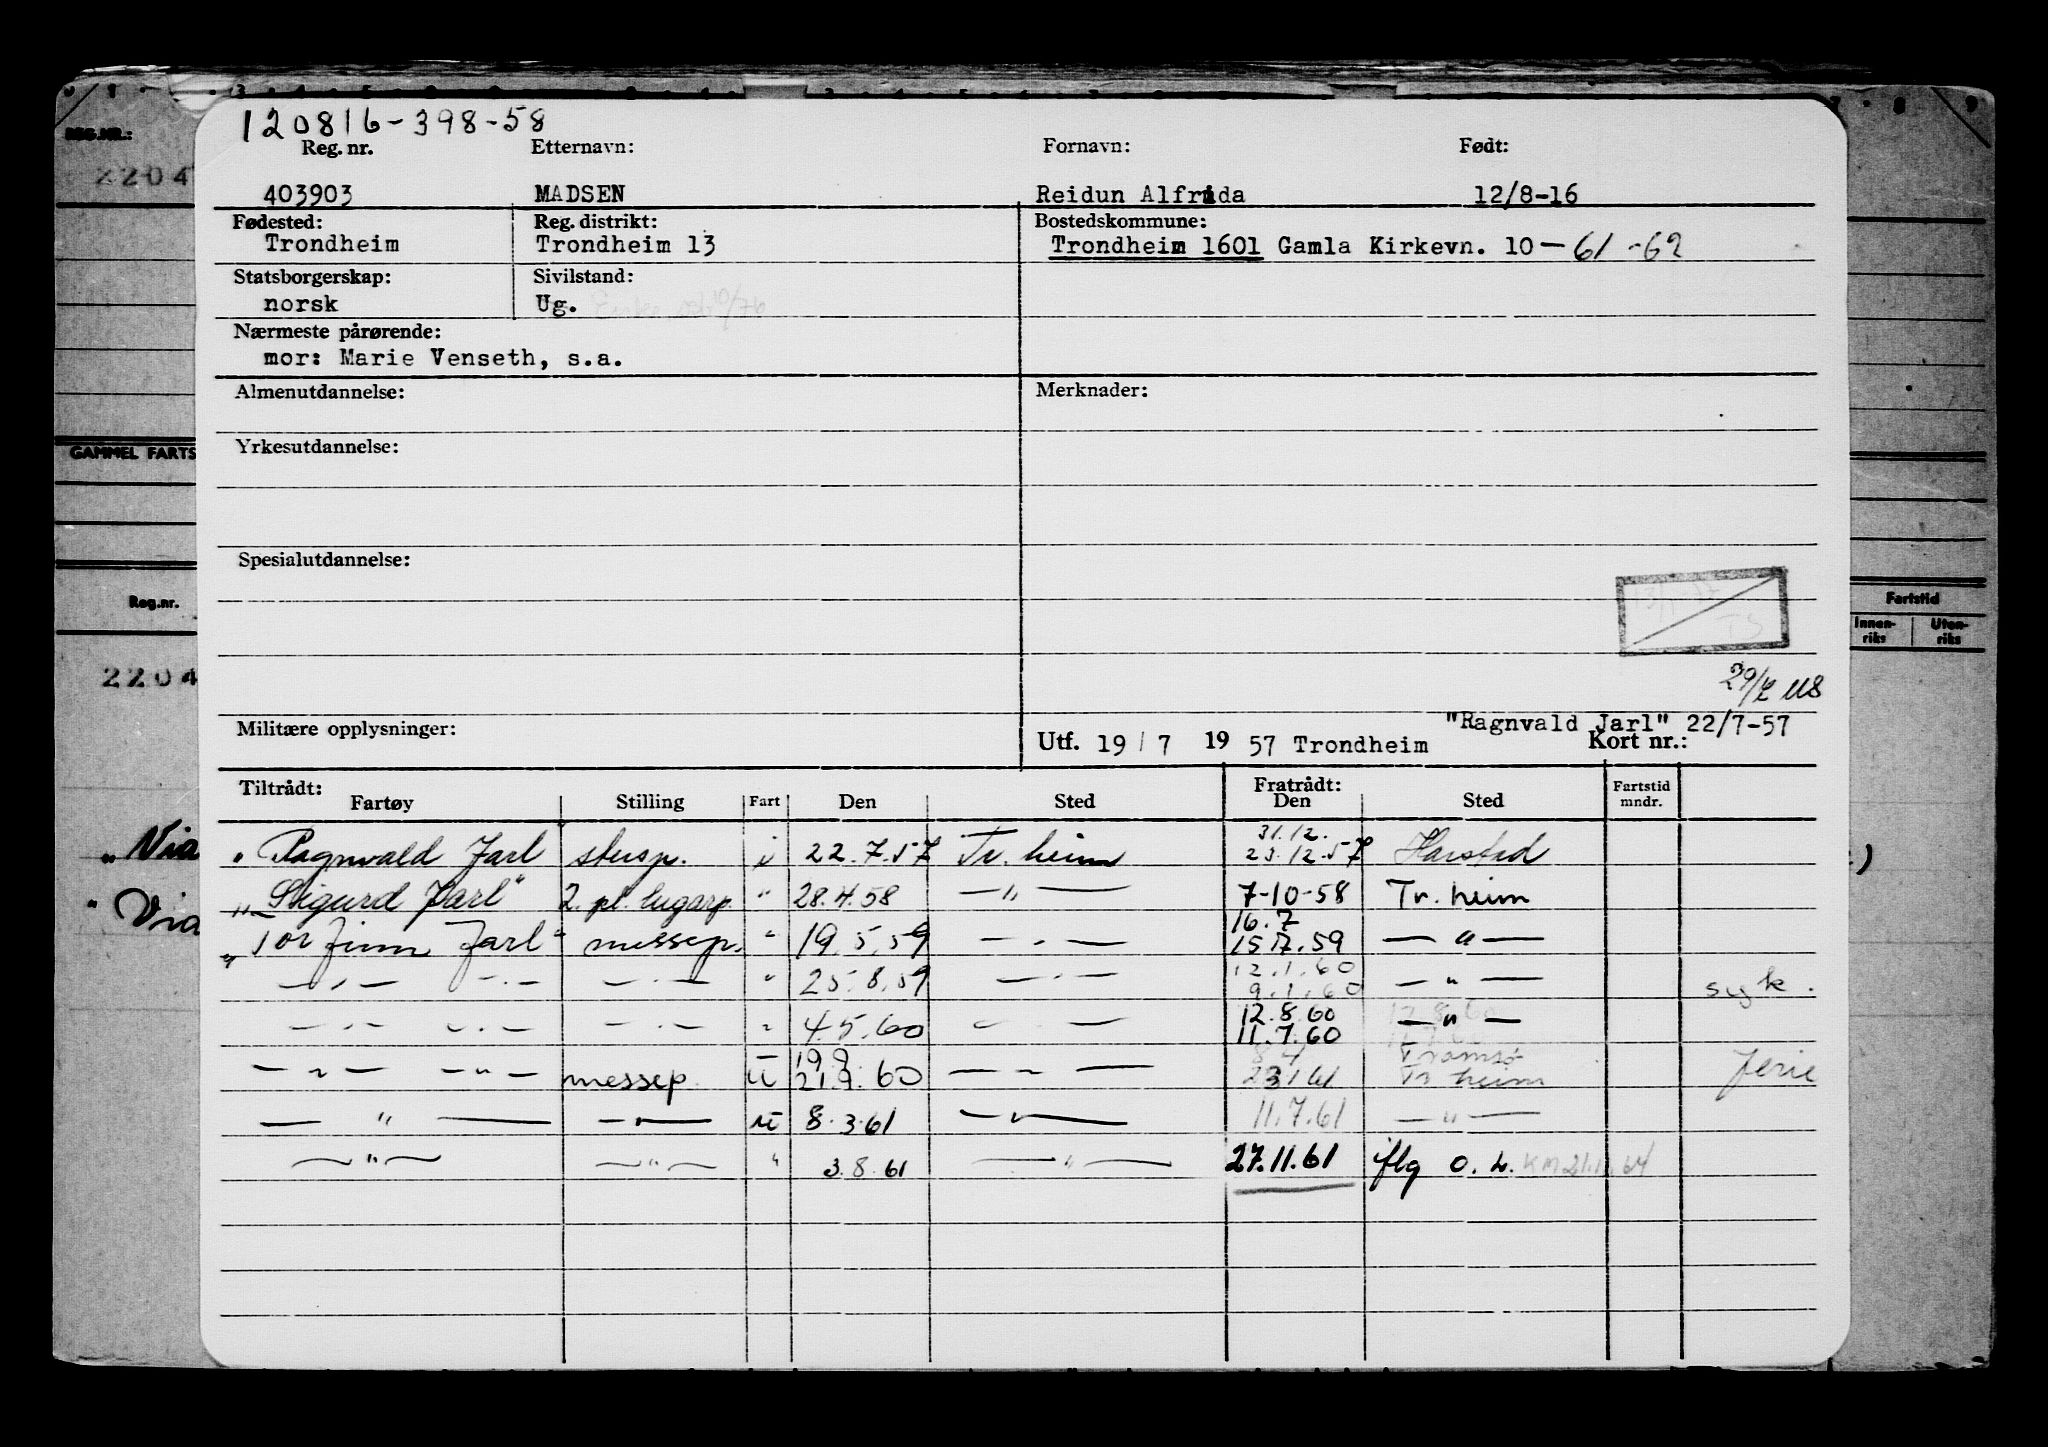 120816-398-58
Reg. nr. Etternavn: Fornavn: Født:
403903 MADSEN Reidun Alfrida 12/8-16
Fødested: Reg. distrikt: Bostedskommune:
Trondheim Trondheim 13 Trondheim 1601 Gamla Kirkevn. 10 - 61 - 62
Statsborgerskap: Sivilstand:
norsk Ug.
Nærmeste pårørende:
mor: Marie Venseth, s.a.
Almenutdannelse: Merknader:
Yrkesutdannelse:
Spesialutdannelse:
"Ragnvald Jarl" 22/7-57
Militære opplysninger: Utf. 19/7 19 57 Trondheim Kort nr.:
Tiltrådt: Fratrådt:
Fartøy Stilling Fart Den Sted Den Sted Fartstid mndr.
31.12.
"Ragnvald Jarl" stersp. i 22.7.57 Tr.heim 23.12.57 Harstad
"Sigurd Jarl" 2. pl. lugarp. " 28.4.58 — " — 7-10-58 Tr.heim
16.7
"Torfinn Jarl" messep. " 19.5.59 — " — 15.7.59 — " —
12.1.60
— " — — " — — " — " 25.8.59 — " — 9.1.60 — " — syk.
12.8.60
— " — — " — — " — " 4.5.60 — " — 11.7.60 — " —
19.9 Tromsø
— " — — " — messep. u 21.9.60 — " — Tr heim ferie
— " — — " — u 8.3.61 — " — 11.7.61 — " —
— " — — " — " 3.8.61 — " — 27.11.61 iflg o.L.
REG.NR.:
2204
GAMMEL FARTS
Reg.nr.
2204
"Via
"Via
Fartstid
Innen-riks Uten-riks